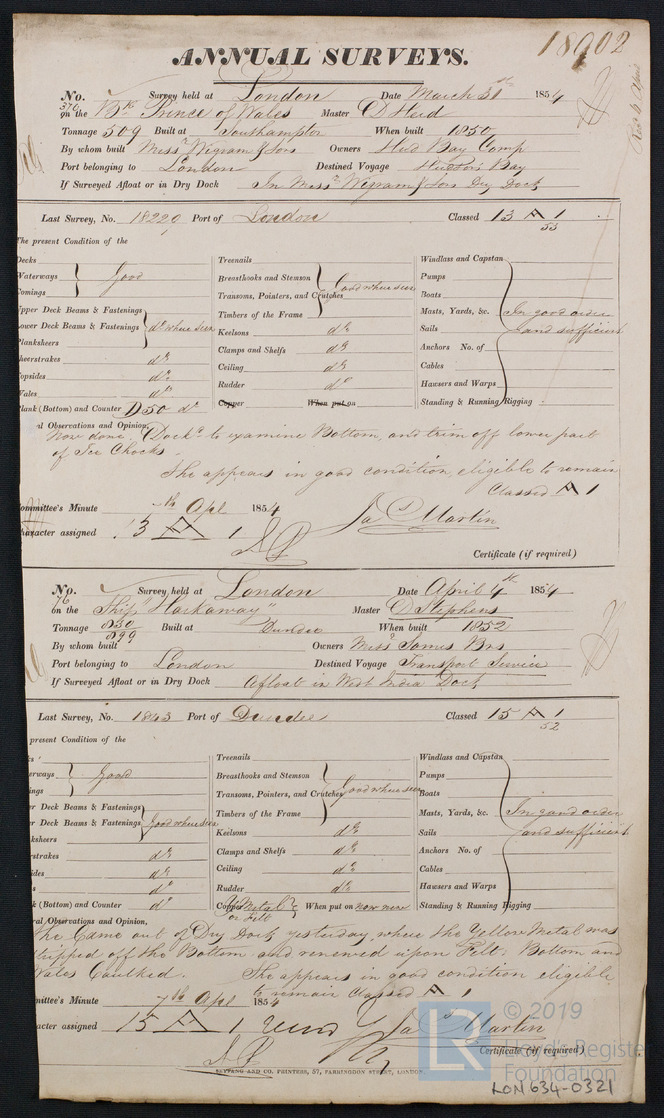 18902
ANNUAL SURVEYS.
No. Survey held at London Date March 31st 1854
370 on the Bk Prince of Wales Master D Herd
Tonnage 509 Built at Southampton When built 1850
By whom built Messrs Wigram & Sons Owners Hud Bay Comp
Port belonging to London Destined Voyage Hudsons Bay
If Surveyed Afloat or in Dry Dock In Messrs Wigram & Sons Dry Dock
Last Survey, No. 18229 Port of London Classed 13 A 1
53
The present Condition of the
Decks Treenails Windlass and Capstan
Waterways Good Breasthooks and Stemson Good where seen Pumps
Comings Transoms, Pointers, and Crutches Boats
Upper Deck Beams & Fastenings Timbers of the Frame Masts, Yards, &c. In good order
Lower Deck Beams & Fastenings do where seen Keelsons do Sails and sufficient
Planksheers Clamps and Shelfs do Anchors No. of
Sheerstrakes do Ceiling do Cables
Topsides do Rudder do Hawsers and Warps
Wales do Copper When put on Standing & Running Rigging
Plank (Bottom) and Counter D50 do
al Observations and Opinion,
Now done, Dockd to examine Bottom, and trim off lower part
of Ice Chocks.
She appears in good condition, eligible to remain
Classed A 1
Committee's Minute 7th Apl 1854 Jas Martin
Character assigned 13 A 1
Certificate (if required)
No. Survey held at London Date April 4th 1854
76 on the Ship "Hackaway" Master D Stephens
Tonnage 830 Built at Dundee When built 1852
899
By whom built Owners Messrs Somes Brs
Port belonging to London Destined Voyage Transport Service
If Surveyed Afloat or in Dry Dock Afloat in West India Dock
Last Survey, No. 1843 Port of Dundee Classed 15 A 1
52
present Condition of the
ks Treenails Windlass and Capstan
erways Good Breasthooks and Stemson Good where seen Pumps
ings Transoms, Pointers, and Crutches Boats
er Deck Beams & Fastenings Timbers of the Frame Masts, Yards, &c. In good order
er Deck Beams & Fastenings Good where seen Keelsons do Sails and sufficient
ksheers Clamps and Shelfs do Anchors No. of
rstrakes do Ceiling do Cables
ides do Rudder do Hawsers and Warps
s do Copper Y Metal or Felt When put on now new Standing & Running Rigging
k (Bottom) and Counter do
ral Observations and Opinion,
She Came out of Dry Dock yesterday, where the Yellow Metal was
stripped off the Bottom and renewed upon Felt. Bottom and
Wales Caulked. She appears in good condition eligible
to remain Classed A 1
mittee's Minute 7th Apl 1854
acter assigned 15 A 1 Jas Martin
Certificate (if required)
SEYFANG AND CO. PRINTERS, 57, FARRINGDON STREET, LONDON.
© 2019
LR Lloyd's Register
Foundation
LON634-0321